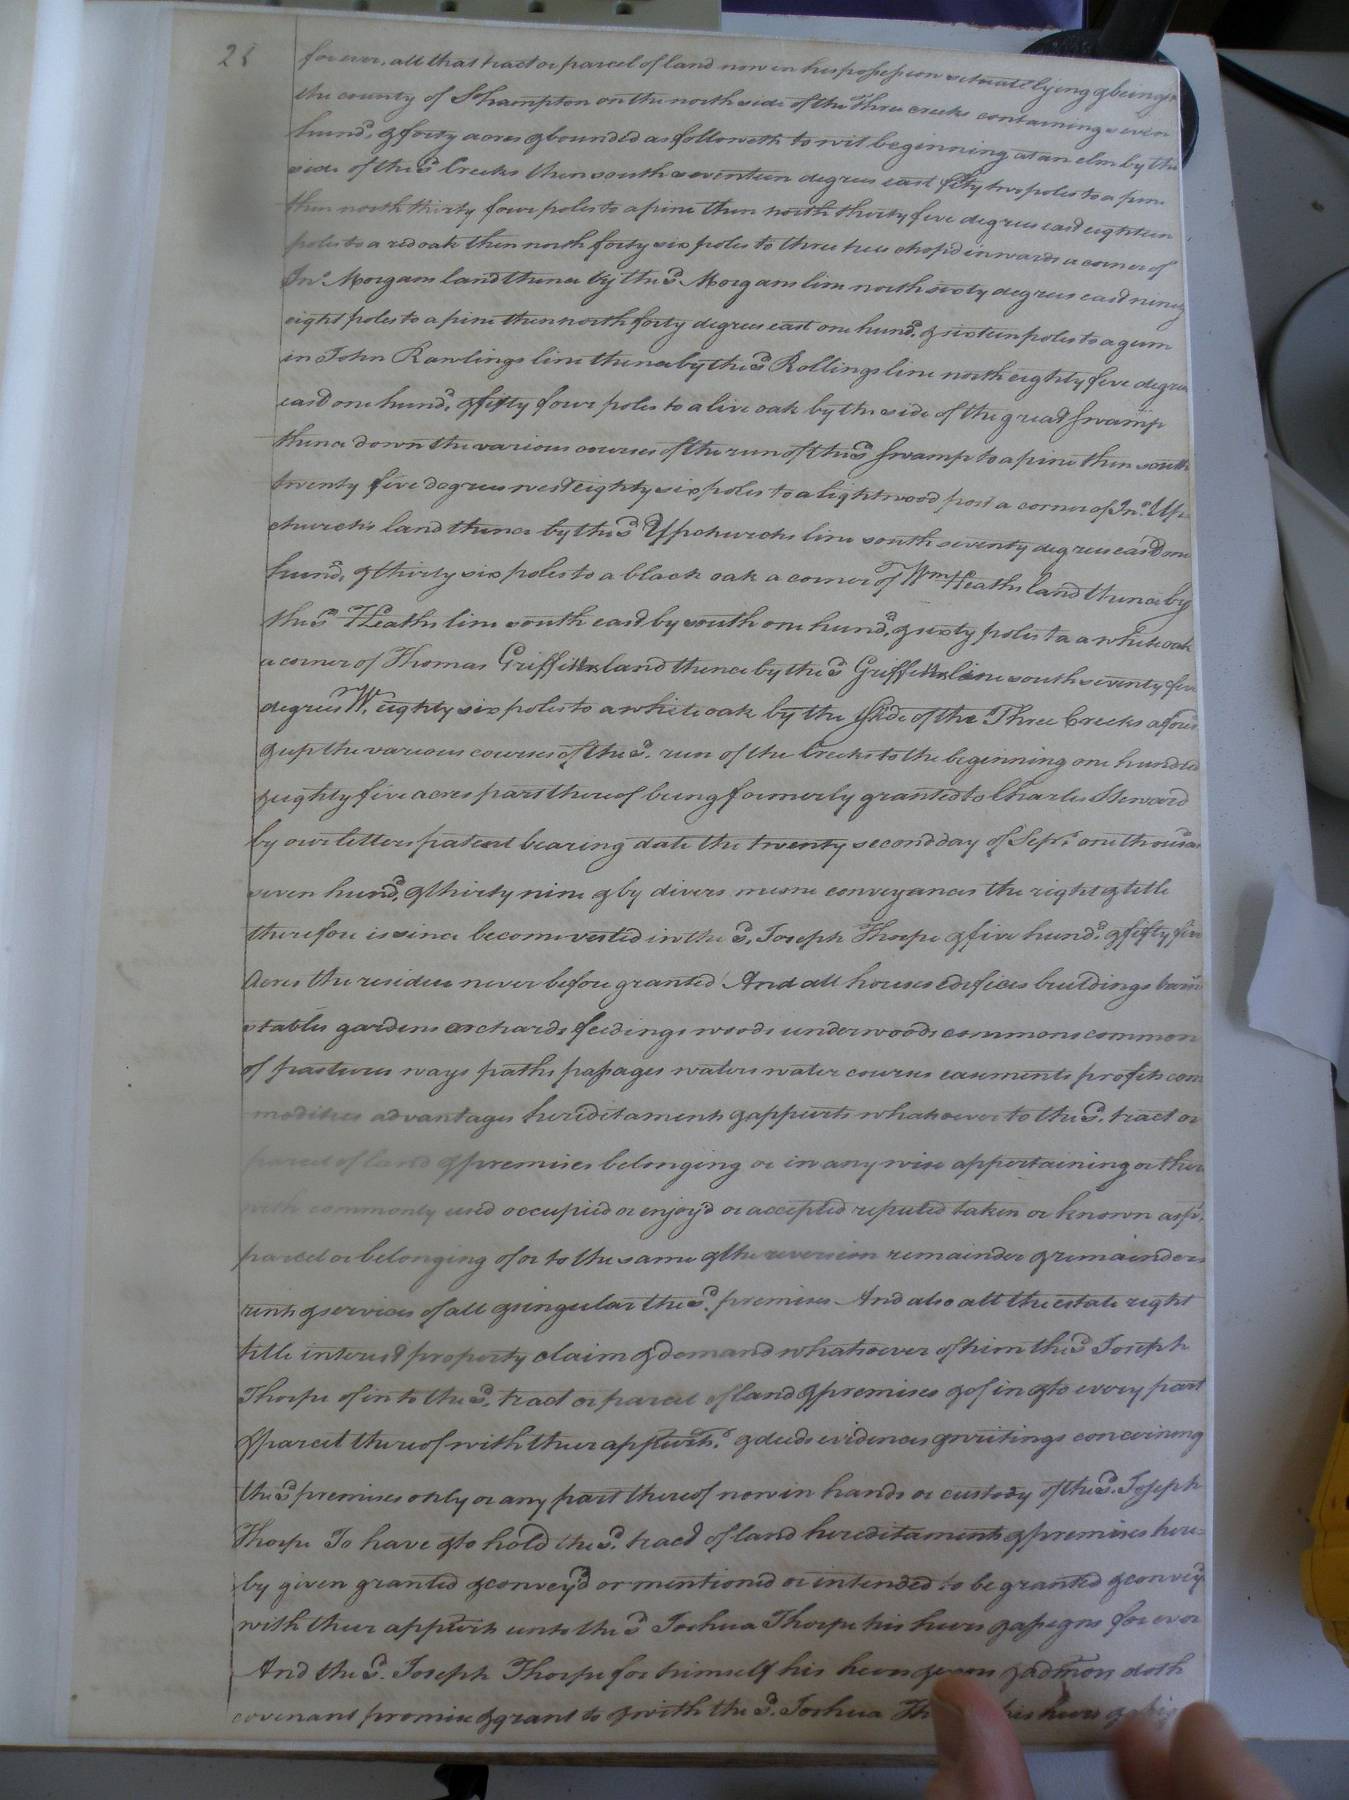 28
for ever, all that tract or parcel of land now in his possession situate lying & being in
the county of Sohampton on the north side of the Three creeks containing seven
hund.d & forty acres & bounded as followeth to wit beginning at an elm by the
side of the s.d Creeks then south seventeen degrees east fifty two poles to a pine
then north thirty four poles to a pine then north thirty five degrees east eighteen
poles to a red oak then north forty six poles to three trees chop'd inwards a corner of
Jn.o Morgans land thence by the s.d Morgans line north sixty degrees east ninety
eight poles to a pine then north forty degrees east one hund.d & sixteen poles to a gum
in John Rawlings line thence by the s.d Rollings line north eighty five degrees
east one hund.d & fifty four poles to a live oak by the side of the great swamp
thence down the various courses of the run of the s.d swamp to a pine then south
twenty five degrees west eighty six poles to a lightwood post a corner of Jn.o Up
church's land thence by the s.d Upchurchs line south seventy degrees east one
hund.d & thirty six poles to a black oak a corner of Wm Heaths land thence by
the s.d Heaths line south east by south one hund.d & sixty poles to a white oak
a corner of Thomas Griffins land thence by the s.d Griffins line south seventy five
degrees W. eighty six poles to a white oak by the side of the Three Creeks afores.d
& up the various courses of the s.d run of the Creeks to the beginning one hundred
& eighty five acres part thereof being formerly granted to Charles Steward
by our letters patent bearing date the twenty second day of Sep.r one thousand
seven hund.d & thirty nine & by divers mesne conveyances the right & title
therefore is since become vested in the s.d Joseph Thorpe & five hund.d & fifty five
Acres the residue never before granted And all houses edefices buildings barns
stables gardens orchards feedings woods underwoods commons common
of pastures ways paths passages waters water courses easements profits com
modities advantages hereditaments & appurts whatsoever to the s.d tract or
parcel of land & premises belonging or in any wise appertaining or there
with commonly used occupied or enjoy'd or accepted reputed taken or known as p.t
parcel or belonging of or to the same & the reversion remainder & remainders
rents & services of all & singular the s.d premises And also all the estate right
title interest property claim & demand whatsoever of him the s.d Joseph
Thorpe of in to the s.d tract or parcel of land & premises & of in & to every part
& parcel thereof with their appurts. & deeds evidences & writings concerning
the s.d premises only or any part thereof now in hands or custody of the s.d Joseph
Thorpe To have & to hold the s.d tract of land hereditaments & premises here=
by given granted & convey'd or mentioned or intended to be granted & convey'd
with their appurts unto the s.d Joshua Thorpe his heirs & assigns for ever
And the s.d Joseph Thorpe for himself his heirs & admors doth
covenant promise & grant to & with the s.d Joshua his heirs &